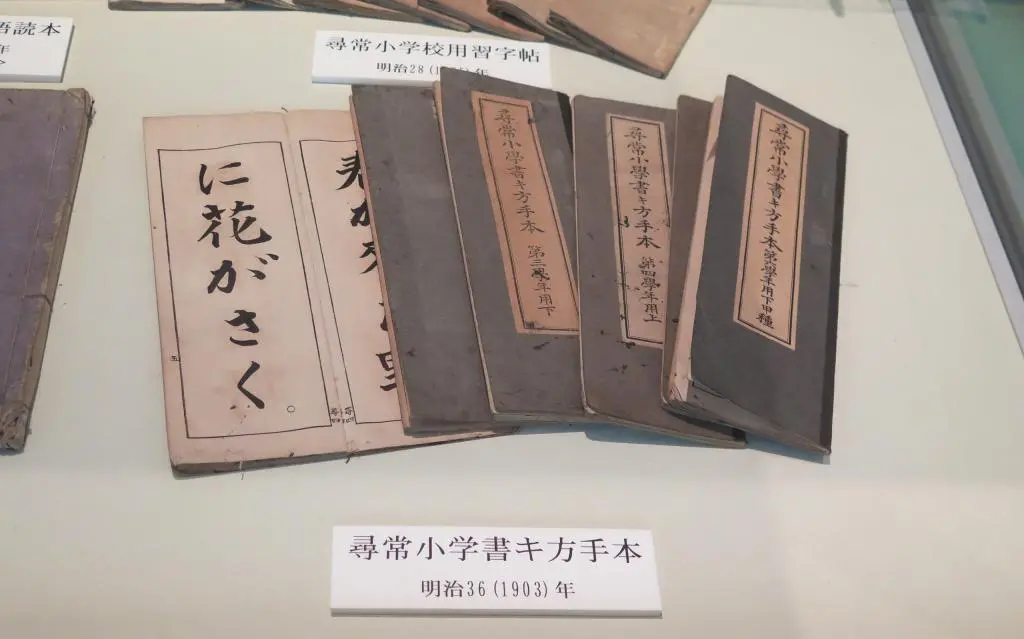 語読本
年
尋常小学校用習字帖
明治28(1895)年
に花がさく。
五
尋常小學書キ方手本 第三學年用下
尋常小學書キ方手本 第四學年用上
尋常小學書キ方手本 第六學年用下甲種
尋常小学書キ方手本
明治36(1903)年